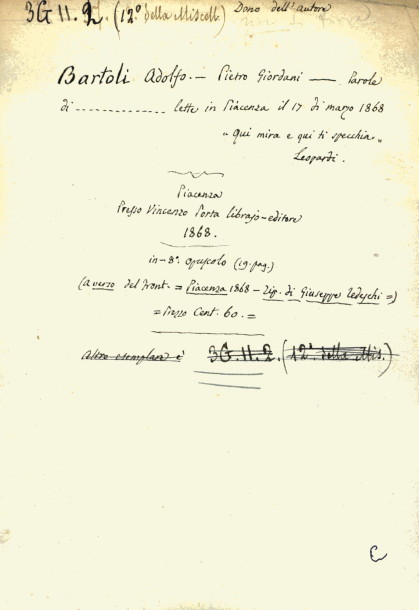 3G 11. 2. (12º della Miscell.) Dono dell'autore
Bartoli Adolfo. — Pietro Giordani — Parole
di -------------- lette in Piacenza il 17 di marzo 1868
"Qui mira e qui ti specchia„
Leopardi.
Piacenza
Presso Vincenzo Porta librajo-editore
1868.
in-8º. opuscolo (19. pag.)
(a verso del front. = Piacenza 1868 - Tip. di Giuseppe Tedeschi =)
= Prezzo Cent. 60. =
Altro esemplare è 3G. 11. 2. (12º della Mis.)